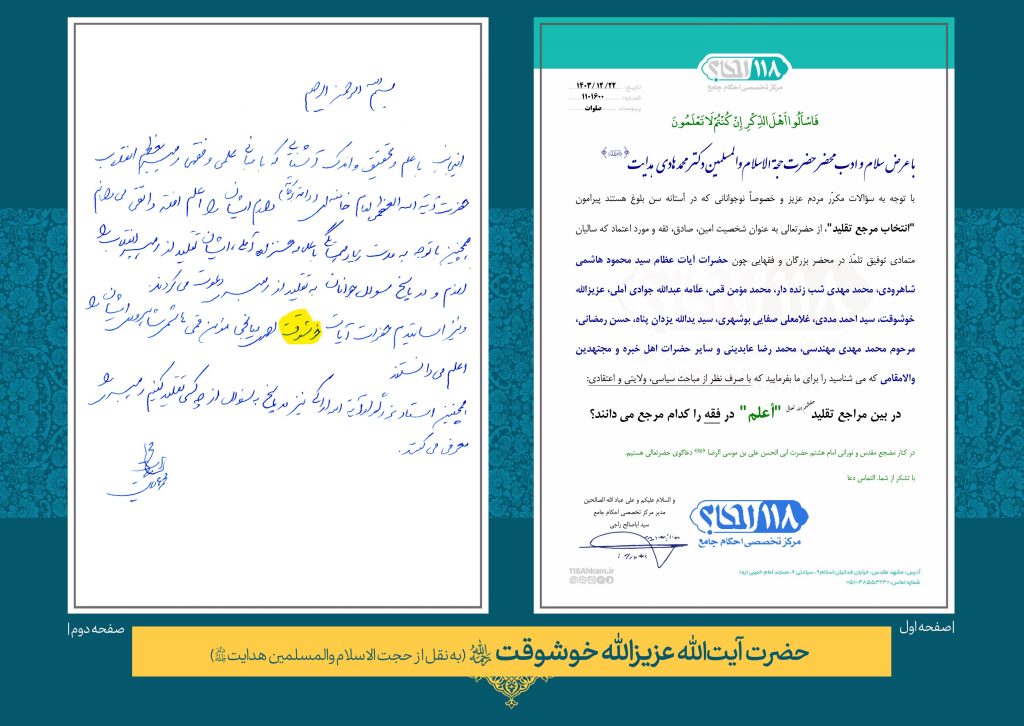 ۱۱۸ احکام
مرکز تخصصی احکام جامع
تاریخ: ۱۴۰۳/۱۲/۲۲
شماره: ۱۱۰۱۶۰۰
پیوست: صلوات
فَاسْأَلُوا أَهْلَ الذِّكْرِ إِنْ كُنْتُمْ لَا تَعْلَمُونَ
با عرض سلام و ادب محضر حضرت حجة الاسلام والمسلمین دکتر محمد هادی هدایت
با توجه به سؤالات مکرّر مردم عزیز و خصوصاً نوجوانانی که در آستانه سن بلوغ هستند پیرامون
"انتخاب مرجع تقلید"، از حضرتعالی به عنوان شخصیت امین، صادق، ثقه و مورد اعتماد که سالیان
متمادی توفیق تلمّذ در محضر بزرگان و فقهایی چون حضرات آیات عظام سید محمود هاشمی
شاهرودی، محمد مهدی شب زنده دار، محمد مؤمن قمی، علّامه عبدالله جوادی آملی، عزیزالله
خوشوقت، سید احمد مددی، غلامعلی صفایی بوشهری، سید یدالله یزدان پناه، حسن رمضانی،
مرحوم محمد مهدی مهندسی، محمد رضا عابدینی و سایر حضرات اهل خبره و مجتهدین
والامقامی که می شناسید را برای ما بفرمایید که با صرف نظر از مباحث سیاسی، ولایتی و اعتقادی:
در بین مراجع تقلید "أعلم" در فقه را کدام مرجع می دانند؟
در کنار مضجع مقدس و نورانی امام هشتم حضرت ابی الحسن علی بن موسی الرضا دعاگوی حضرتعالی هستیم.
با تشکر از شما، التماس دعا
و السلام علیکم و علی عباد الله الصالحین
مدیر مرکز تخصصی احکام جامع
سید اباصالح راجی
۱۱۸ احکام
مرکز تخصصی احکام جامع
118Ahkam.ir
آدرس: مشهد مقدس، خیابان فدائیان اسلام۹، سیادتی ۶، مسجد امام خمینی (ره)
شماره تماس: ۳۸۵۵۴۲۴۰-۰۵۱
|صفحه اول
بسم الله الرحمن الرحیم
اینجانب با علم و تحقیق و اندک آشنایی که با مبانی علمی و فقهی رهبر معظم انقلاب
حضرت آیة الله العظمی امام خامنه ای دارم ایشان را اعلم افقه و اتقی می دانم
همچنین با توجه به مدت زیاد همسایگی با علامه حسن زاده آملی، ایشان تقلید از رهبر انقلاب را
لازم و در پاسخ سوال جوانان به تقلید از رهبری دعوت می کردند.
و نیز اساتیدم حضرات آیات خوشوقت مؤمن قمی هاشمی شاهرودی ایشان را
اعلم می دانستند
همچنین استاد بزرگوار آیة الله نیز در پاسخ به سوال از چه کسی تقلید کنیم رهبری را
معرفی می کنند.
صفحه دوم|
حضرت آیت‌الله عزیزالله خوشوقت (به نقل از حجت الاسلام والمسلمین هدایت)